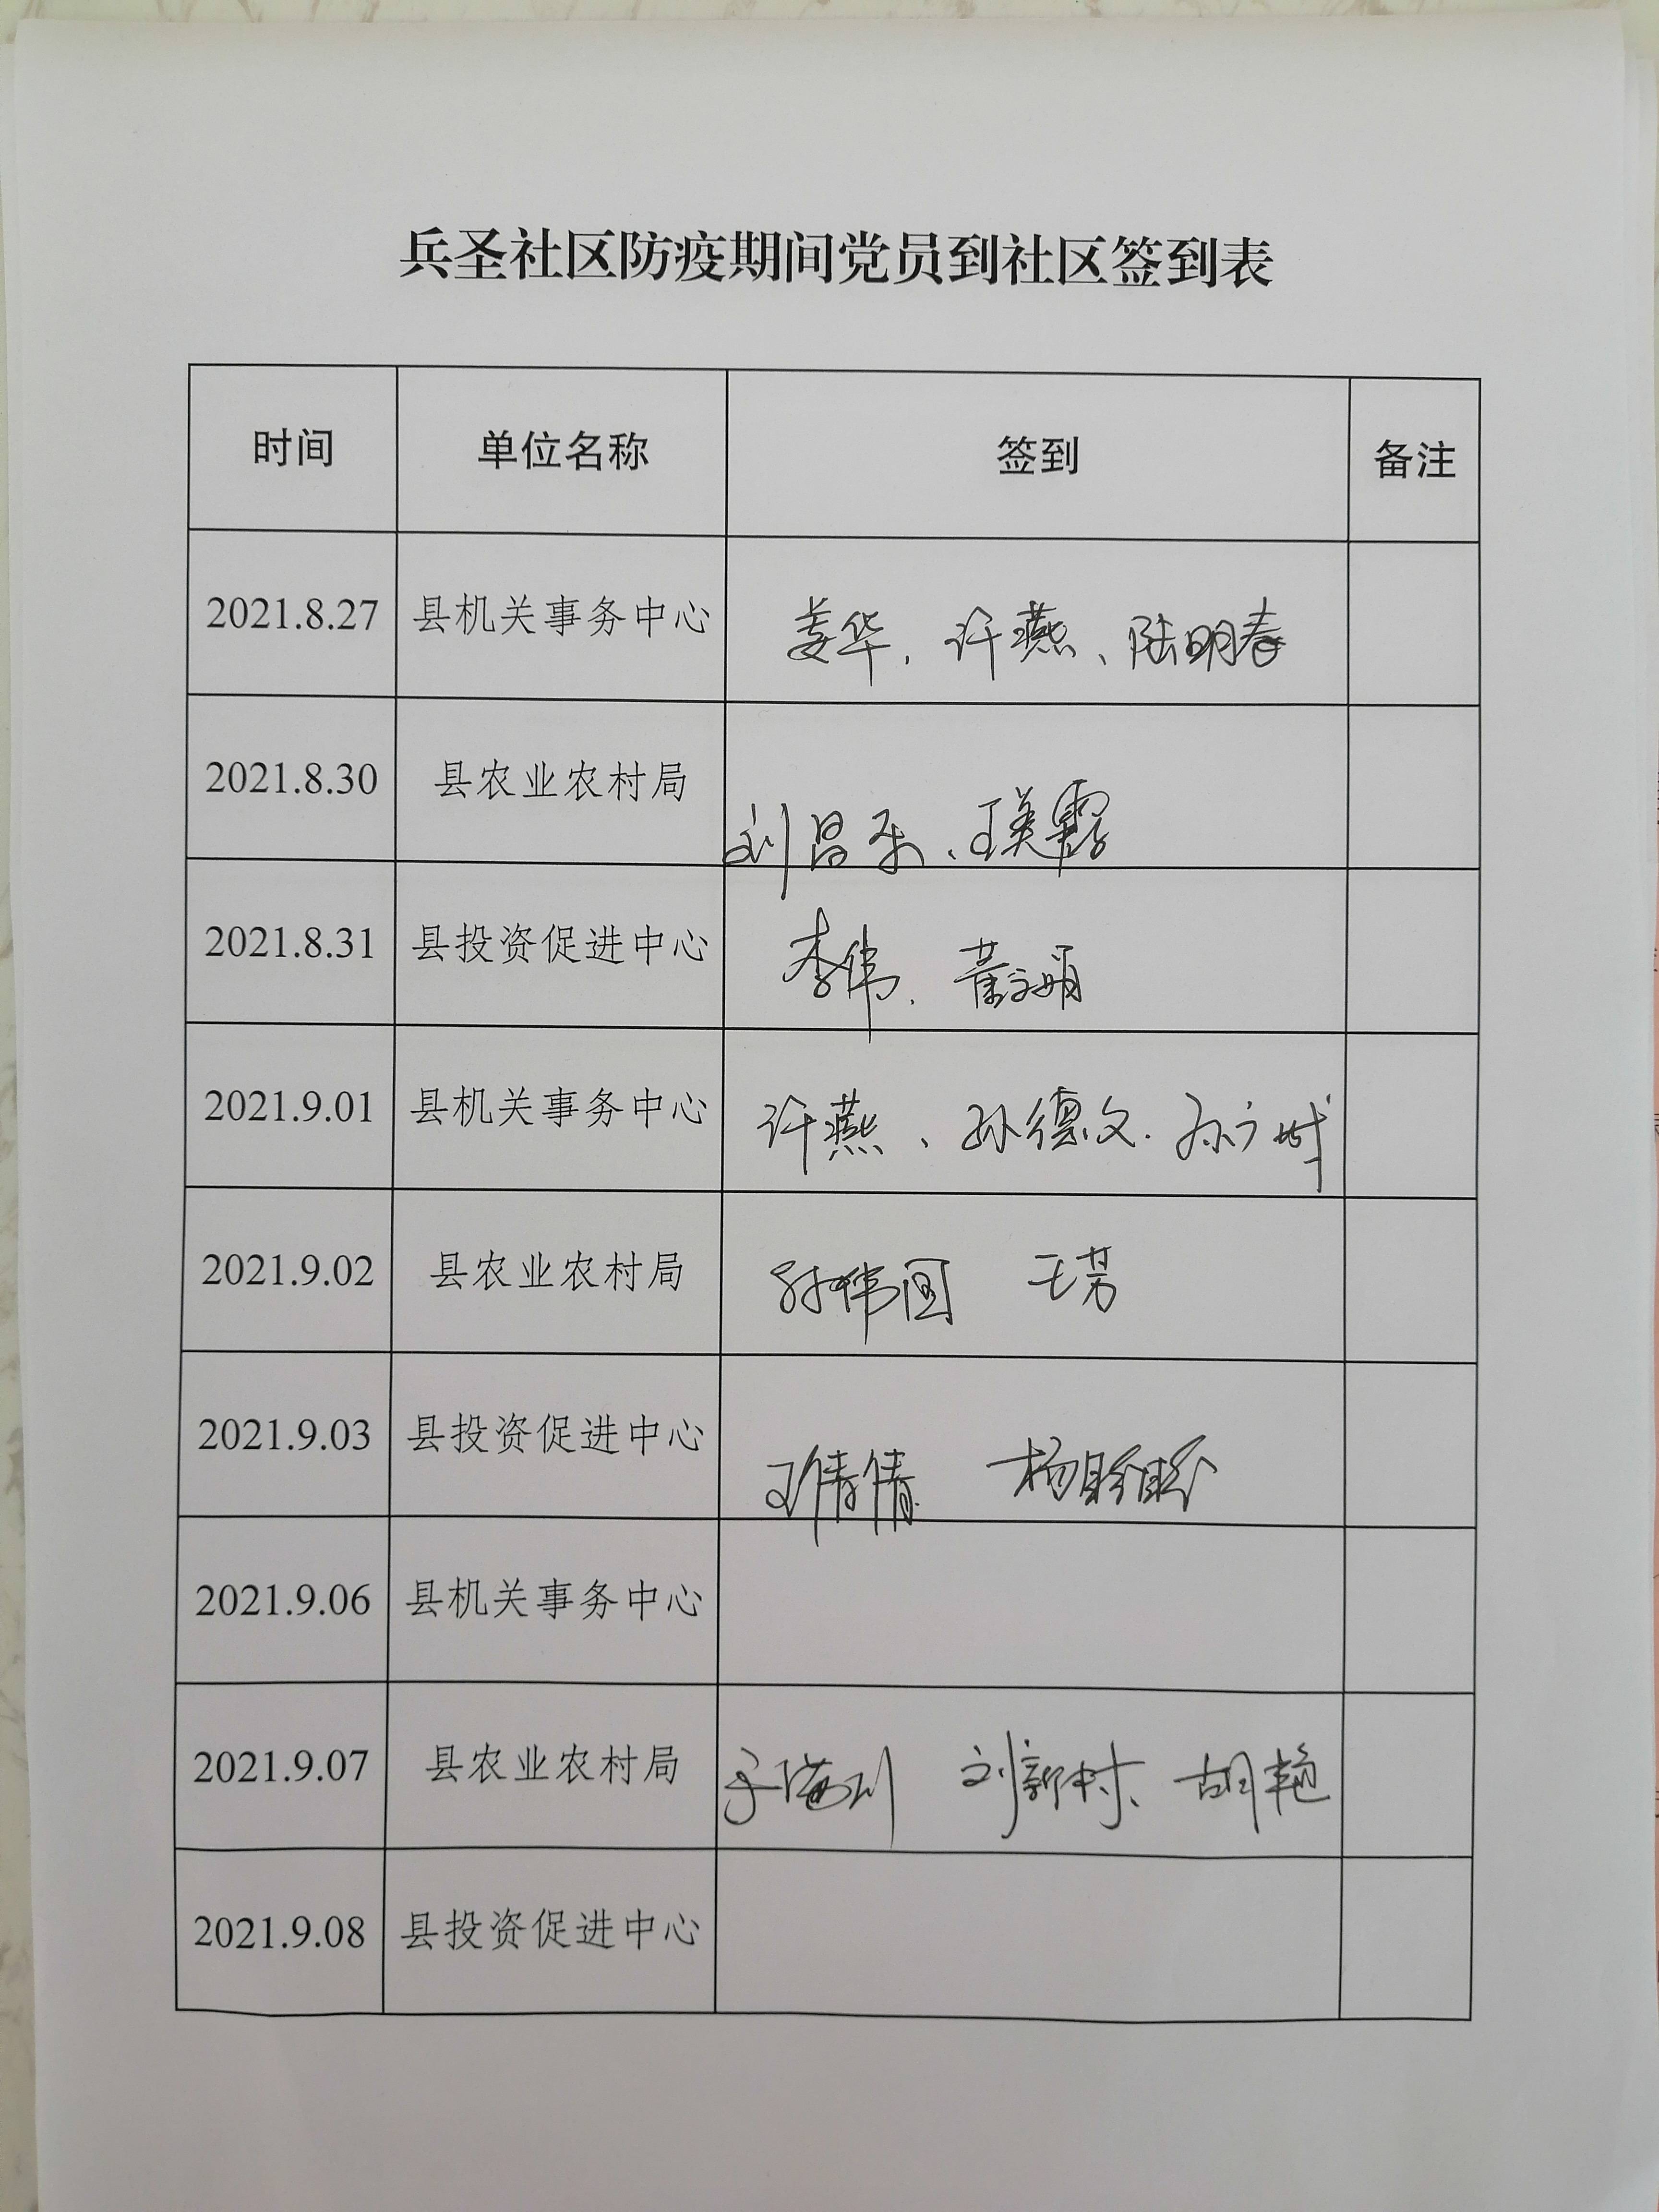 兵圣社区防疫期间党员到社区签到表
时间 单位名称 签到 备注
2021.8.27 县机关事务中心 姜华、许燕、陆明春
2021.8.30 县农业农村局 刘昌乐、王美霞
2021.8.31 县投资促进中心 李伟、董文娟
2021.9.01 县机关事务中心 许燕、孙德文、孙广城
2021.9.02 县农业农村局 孙伟国 王芳
2021.9.03 县投资促进中心 王倩倩 杨盼盼
2021.9.06 县机关事务中心
2021.9.07 县农业农村局 刘新村、胡艳
2021.9.08 县投资促进中心